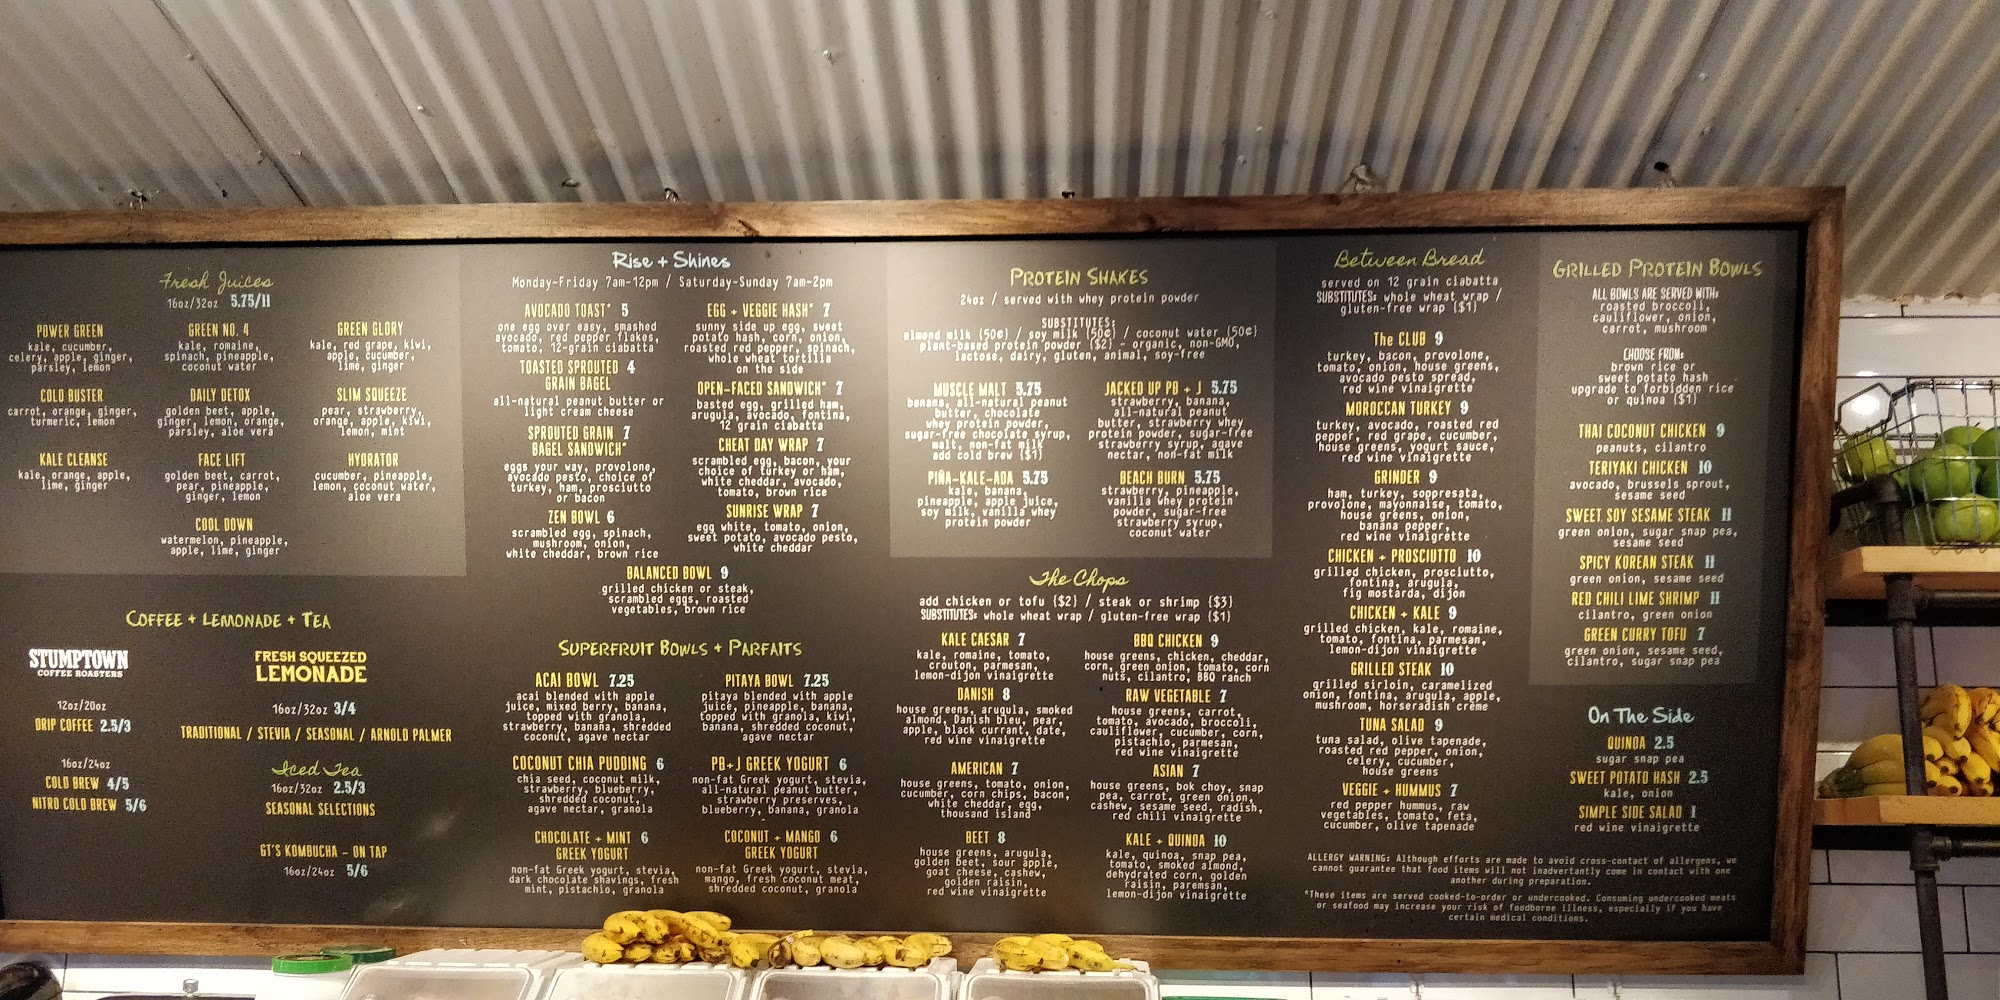 Fresh Juices
16oz/32oz 5.75/11
POWER GREEN
kale, cucumber,
celery, apple, ginger,
parsley, lemon
GREEN NO. 4
kale, romaine,
spinach, pineapple,
coconut water
GREEN GLORY
kale, red grape, kiwi,
apple, cucumber,
lime, ginger
COLD BUSTER
carrot, orange, ginger,
turmeric, lemon
DAILY DETOX
golden beet, apple,
ginger, lemon, orange,
parsley, aloe vera
SLIM SQUEEZE
pear, strawberry,
orange, apple, kiwi,
lemon, mint
KALE CLEANSE
kale, orange, apple,
lime, ginger
FACE LIFT
golden beet, carrot,
pear, pineapple,
ginger, lemon
HYDRATOR
cucumber, pineapple,
lemon, coconut water,
aloe vera
COOL DOWN
watermelon, pineapple,
apple, lime, ginger
COFFEE + LEMONADE + TEA
STUMPTOWN
COFFEE ROASTERS
12oz/20oz
DRIP COFFEE 2.5/3
16oz/24oz
COLD BREW 4/5
NITRO COLD BREW 5/6
FRESH SQUEEZED
LEMONADE
16oz/32oz 3/4
TRADITIONAL / STEVIA / SEASONAL / ARNOLD PALMER
Iced Tea
16oz/32oz 2.5/3
SEASONAL SELECTIONS
GT'S KOMBUCHA - ON TAP
16oz/24oz 5/6
Rise + Shines
Monday-Friday 7am-12pm / Saturday-Sunday 7am-2pm
AVOCADO TOAST* 5
one egg over easy, smashed
avocado, red pepper flakes,
tomato, 12-grain ciabatta
TOASTED SPROUTED 4
GRAIN BAGEL
all-natural peanut butter or
light cream cheese
SPROUTED GRAIN 7
BAGEL SANDWICH*
eggs your way, provolone,
avocado pesto, choice of
turkey, ham, prosciutto
or bacon
ZEN BOWL 6
scrambled egg, spinach,
mushroom, onion,
white cheddar, brown rice
EGG + VEGGIE HASH* 7
sunny side up egg, sweet
potato hash, corn, onion,
roasted red pepper, spinach,
whole wheat tortilla
on the side
OPEN-FACED SANDWICH* 7
basted egg, grilled ham,
arugula, avocado, fontina,
12 grain ciabatta
CHEAT DAY WRAP 7
scrambled egg, bacon, your
choice of turkey or ham,
white cheddar, avocado,
tomato, brown rice
SUNRISE WRAP 7
egg white, tomato, onion,
sweet potato, avocado pesto,
white cheddar
BALANCED BOWL 9
grilled chicken or steak,
scrambled eggs, roasted
vegetables, brown rice
SUPERFRUIT BOWLS + PARFAITS
ACAI BOWL 7.25
acai blended with apple
juice, mixed berry, banana,
topped with granola,
strawberry, banana, shredded
coconut, agave nectar
PITAYA BOWL 7.25
pitaya blended with apple
juice, pineapple, banana,
topped with granola, kiwi,
banana, shredded coconut,
agave nectar
COCONUT CHIA PUDDING 6
chia seed, coconut milk,
strawberry, blueberry,
shredded coconut,
agave nectar, granola
PB+J GREEK YOGURT 6
non-fat Greek yogurt, stevia,
all-natural peanut butter,
strawberry preserves,
blueberry, banana, granola
CHOCOLATE + MINT 6
GREEK YOGURT
non-fat Greek yogurt, stevia,
dark chocolate shavings, fresh
mint, pistachio, granola
COCONUT + MANGO 6
GREEK YOGURT
non-fat Greek yogurt, stevia,
mango, fresh coconut meat,
shredded coconut, granola
PROTEIN SHAKES
24oz / served with whey protein powder
SUBSTITUTES:
almond milk (50¢) / soy milk (50¢) / coconut water (50¢)
plant-based protein powder ($2) - organic, non-GMO,
lactose, dairy, gluten, animal, soy-free
MUSCLE MALT 5.75
banana, all-natural peanut
butter, chocolate
whey protein powder,
sugar-free chocolate syrup,
malt, non-fat milk
add cold brew ($1)
JACKED UP PB + J 5.75
strawberry, banana,
all-natural peanut
butter, strawberry whey
protein powder, sugar-free
strawberry syrup, agave
nectar, non-fat milk
PIÑA-KALE-ADA 5.75
kale, banana,
pineapple, apple juice,
soy milk, vanilla whey
protein powder
BEACH BURN 5.75
strawberry, pineapple,
vanilla whey protein
powder, sugar-free
strawberry syrup,
coconut water
The Chops
add chicken or tofu ($2) / steak or shrimp ($3)
SUBSTITUTES: whole wheat wrap / gluten-free wrap ($1)
KALE CAESAR 7
kale, romaine, tomato,
crouton, parmesan,
lemon-dijon vinaigrette
BBQ CHICKEN 9
house greens, chicken, cheddar,
corn, green onion, tomato, corn
nuts, cilantro, BBQ ranch
DANISH 8
house greens, arugula, smoked
almond, Danish bleu, pear,
apple, black currant, date,
red wine vinaigrette
RAW VEGETABLE 7
house greens, carrot,
tomato, avocado, broccoli,
cauliflower, cucumber, corn,
pistachio, parmesan,
red wine vinaigrette
AMERICAN 7
house greens, tomato, onion,
cucumber, corn chips, bacon,
white cheddar, egg,
thousand island
ASIAN 7
house greens, bok choy, snap
pea, carrot, green onion,
cashew, sesame seed, radish,
red chili vinaigrette
BEET 8
house greens, arugula,
golden beet, sour apple,
goat cheese, cashew,
golden raisin,
red wine vinaigrette
KALE + QUINOA 10
kale, quinoa, snap pea,
tomato, smoked almond,
dehydrated corn, golden
raisin, paremsan,
lemon-dijon vinaigrette
Between Bread
served on 12 grain ciabatta
SUBSTITUTES: whole wheat wrap /
gluten-free wrap ($1)
The CLUB 9
turkey, bacon, provolone,
tomato, onion, house greens,
avocado pesto spread,
red wine vinaigrette
MOROCCAN TURKEY 9
turkey, avocado, roasted red
pepper, red grape, cucumber,
house greens, yogurt sauce,
red wine vinaigrette
GRINDER 9
ham, turkey, soppresata,
provolone, mayonnaise, tomato,
house greens, onion,
banana pepper,
red wine vinaigrette
CHICKEN + PROSCIUTTO 10
grilled chicken, prosciutto,
fontina, arugula,
fig mostarda, dijon
CHICKEN + KALE 9
grilled chicken, kale, romaine,
tomato, fontina, parmesan,
lemon-dijon vinaigrette
GRILLED STEAK 10
grilled sirloin, caramelized
onion, fontina, arugula, apple,
mushroom, horseradish crème
TUNA SALAD 9
tuna salad, olive tapenade,
roasted red pepper, onion,
celery, cucumber,
house greens
VEGGIE + HUMMUS 7
red pepper hummus, raw
vegetables, tomato, feta,
cucumber, olive tapenade
GRILLED PROTEIN BOWLS
ALL BOWLS ARE SERVED WITH:
roasted broccoli,
cauliflower, onion,
carrot, mushroom
CHOOSE FROM:
brown rice or
sweet potato hash
upgrade to forbidden rice
or quinoa ($1)
THAI COCONUT CHICKEN 9
peanuts, cilantro
TERIYAKI CHICKEN 10
avocado, brussels sprout,
sesame seed
SWEET SOY SESAME STEAK 11
green onion, sugar snap pea,
sesame seed
SPICY KOREAN STEAK 11
green onion, sesame seed
RED CHILI LIME SHRIMP 11
cilantro, green onion
GREEN CURRY TOFU 7
green onion, sesame seed,
cilantro, sugar snap pea
On The Side
QUINOA 2.5
sugar snap pea
SWEET POTATO HASH 2.5
kale, onion
SIMPLE SIDE SALAD 1
red wine vinaigrette
ALLERGY WARNING: Although efforts are made to avoid cross-contact of allergens, we
cannot guarantee that food items will not inadvertently come in contact with one
another during preparation.
*These items are served cooked-to-order or undercooked. Consuming undercooked meats
or seafood may increase your risk of foodborne illness, especially if you have
certain medical conditions.